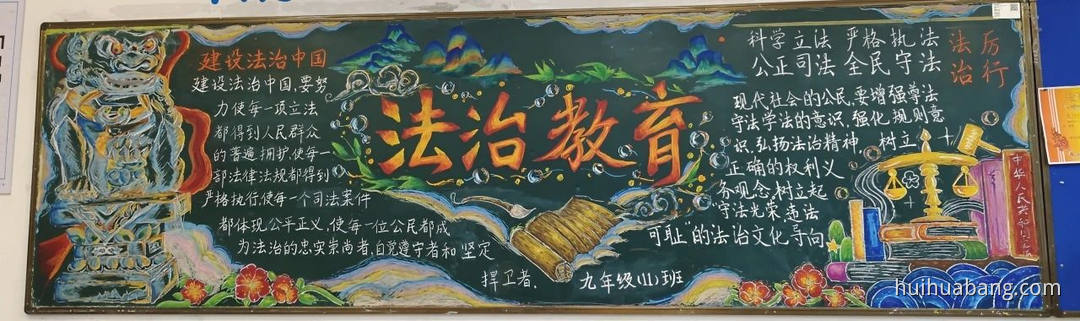 建设法治中国
建设法治中国,要努
力使每一项立法
都得到人民群众
的普遍拥护,使每一
部法律法规都得到
严格执行,使每一个司法案件
都体现公平正义,使每一位公民都成
为法治的忠实崇尚者,自觉遵守者和坚定
捍卫者.
九年级(11)班
法治教育
科学立法 严格执法
公正司法 全民守法
厉行
法治
现代社会的公民,要增强尊法
守法学法的意识,强化规则意
识,弘扬法治精神 树立
正确的权利义
务观念树立起
守法光荣 违法
可耻 的法治文化导向
中华人民共和
huihuabang.com